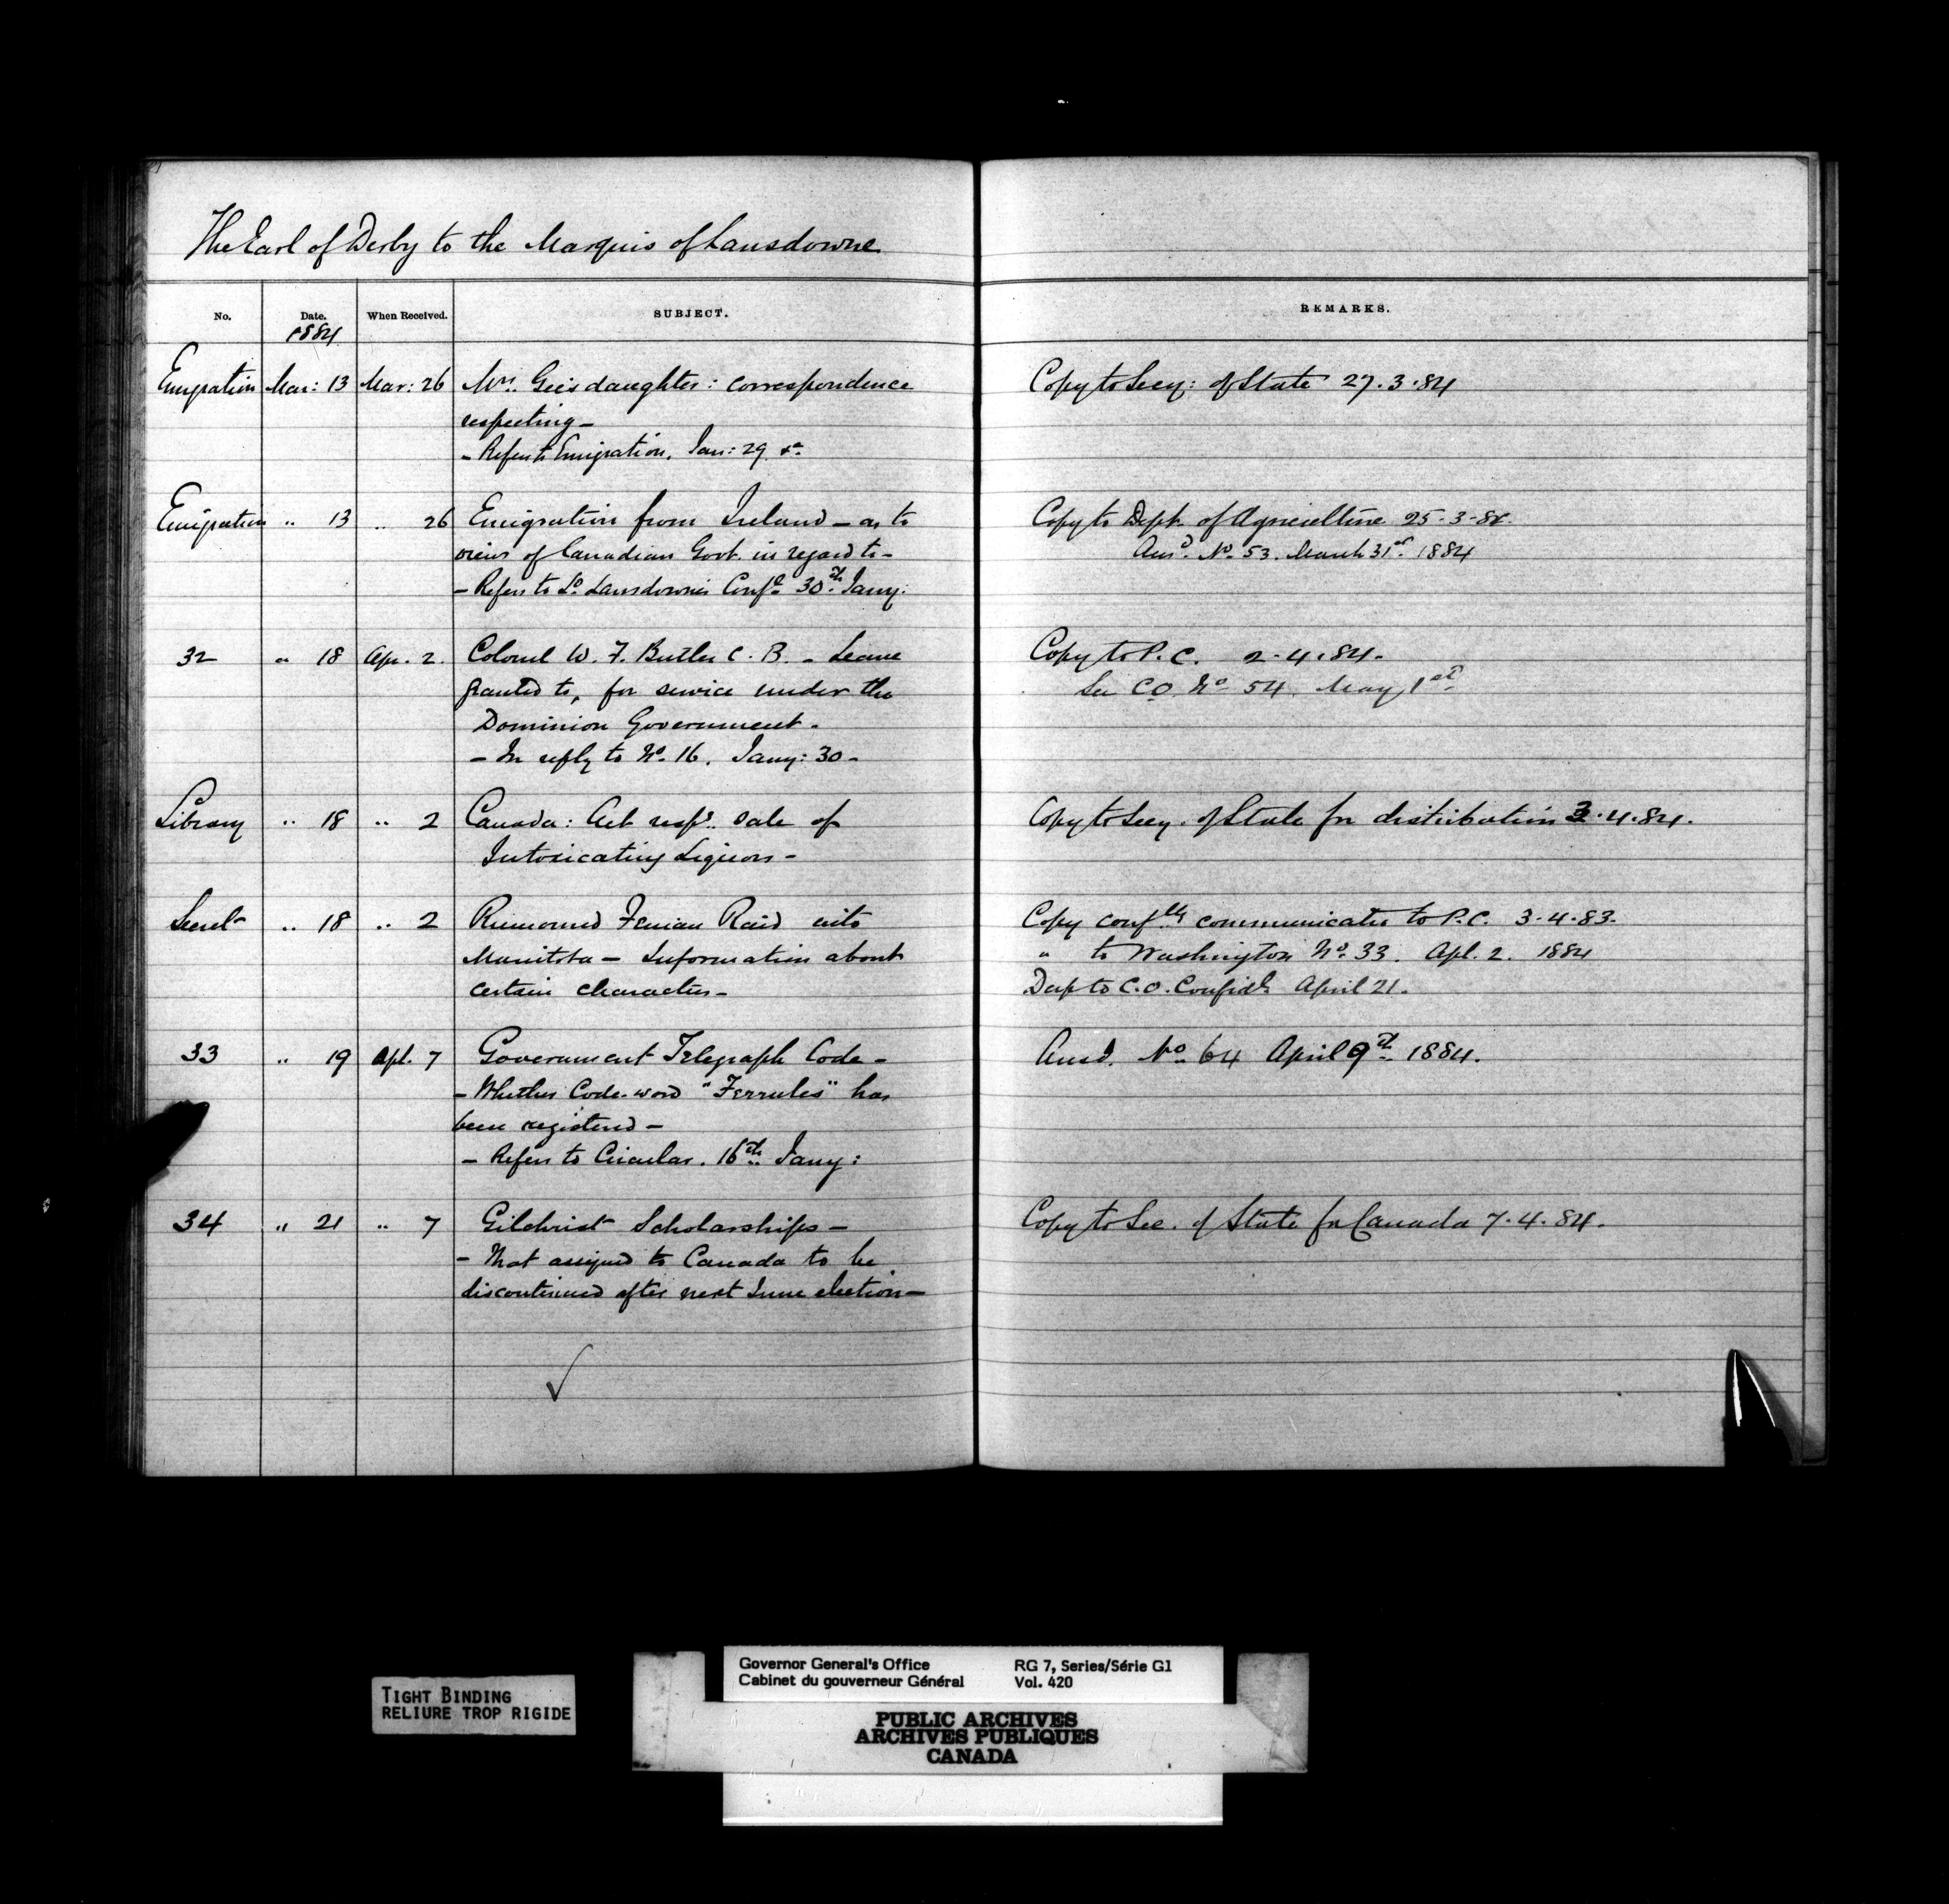 The Earl of Derby to the Marquis of Lansdowne
No. Date. When Received. SUBJECT. REMARKS.
1884
Emigration Mar: 13 Mar: 26 Mrs. Gee's daughter: correspondence Copy to Secy: of State 27.3.84
respecting –
– Refers to Emigration, Jan: 29
Emigration " 13 " 26 Emigration from Ireland – as to Copy to Dept. of Agriculture 25.3.84.
views of Canadian Govt. in regard to – Ansd. No. 53. March 31st. 1884
– Refers to Ld. Lansdowne's Confl. 30th. Jany:
32 " 18 Apr. 2. Colonel W. F. Butler C. B. – Leave Copy to P. C. 2.4.84.
granted to, for service under the See C.O. No. 54. May 1st
Dominion Government.
– In reply to No. 16. Jany: 30 –
Library " 18 " 2 Canada: Act respg. Sale of Copy to Secy. of State for distribution 3.4.84.
Intoxicating Liquors –
Secret " 18 " 2 Rumoured Fenian Raid into Copy confly communicated to P.C. 3.4.83.
Manitoba – Information about " to Washington No. 33. Apl. 2. 1884
certain characters – Desp to C.O. Confidl. April 21.
33 " 19 Apl. 7 Government Telegraph Code – Ansd. No. 64 April 9th. 1884.
– Whether Code-word "Ferrules" has
been registered –
– Refers to Circular. 16th. Jany:
34 " 21 " 7 Gilchrist Scholarships – Copy to Sec. of State for Canada 7.4.84.
– That assigned to Canada to be
discontinued after next June election –
TIGHT BINDING
RELIURE TROP RIGIDE
Governor General's Office RG 7, Series/Série G1
Cabinet du gouverneur Général Vol. 420
PUBLIC ARCHIVES
ARCHIVES PUBLIQUES
CANADA